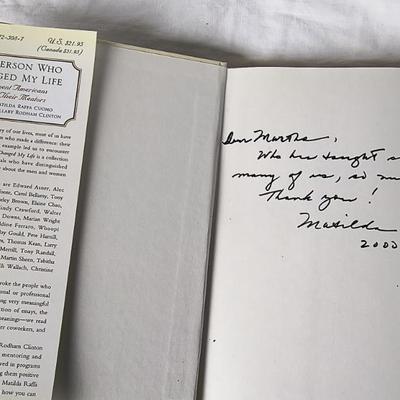 72-398-7
U.S. $21.95
(Canada $31.95)
ERSON WHO
GED MY LIFE
nent Americans
Their Mentors
ATILDA RAFFA CUOMO
LLARY RODHAM CLINTON
ry of our lives, most of us have
on who made a difference: their
example led us to encounter
Changed My Life is a collection
als who have distinguished
about the men and women
are Edward Asner, Alec
one, Carol Bellamy, Tony
ley Brown, Elaine Chao,
indy Crawford, Walter
Downs, Marian Wright
ldine Ferraro, Whoopi
lay Gould, Pete Hamill,
es, Thomas Kean, Larry
Merrill, Tony Randall,
Martin Sheen, Tabitha
li Wallach, Christine
voke the people who
onal or professional
ing very meaningful
tion of essays, the
eanings—we read
coworkers, and
Rodham Clinton
mentoring and
ved in programs
g them positive
Matilda Raffa
how you can
Dear Martha,
Who has taught s
many of us, so mu
Thank you!
Matilda
2000